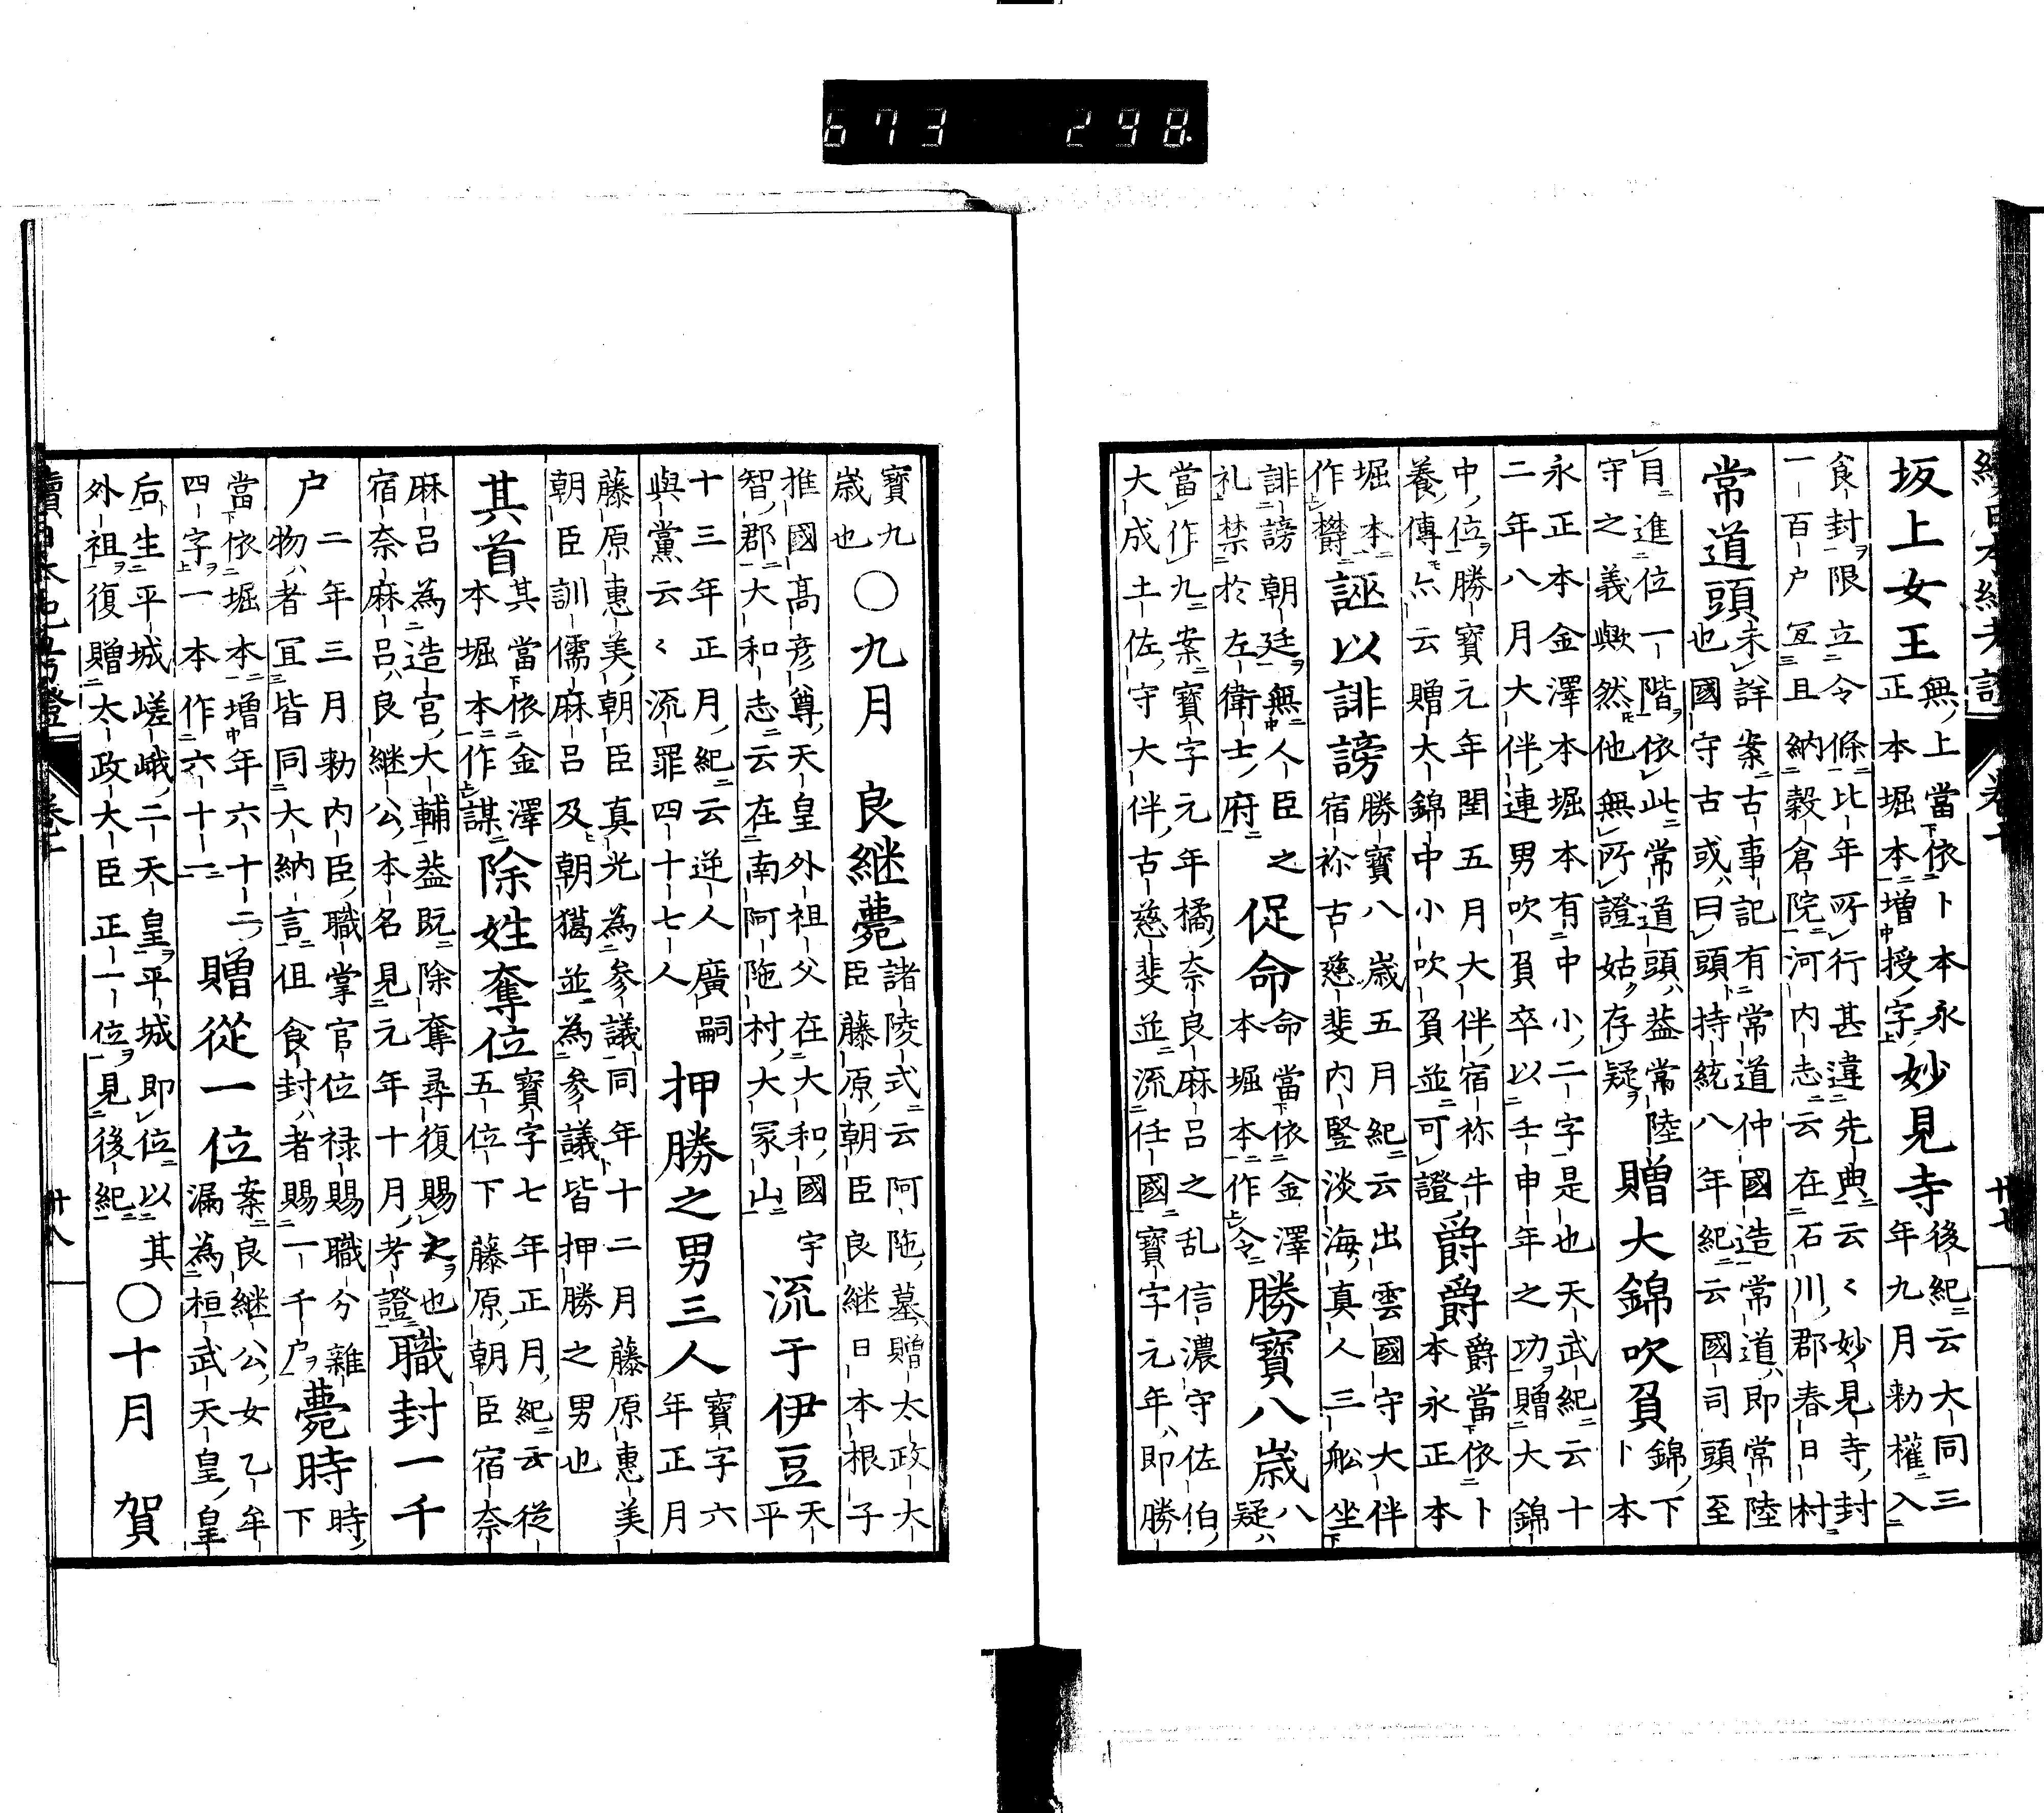 673 298
坂上女王無上當依卜本永正本堀本増授字妙見寺後紀云大同三年九月勅權入
食封限立令條比年所行甚違先典云〻妙見寺封一百戸冝且納穀倉院河内志云在石川郡春日村
常道頭未詳案古事記有常道仲國造常道即常陸也國守古或曰頭持統八年紀云國司頭至
目進位一階依此常道頭蓋常陸守之義歟然他無所證姑存疑贈大錦吹負錦下卜本
永正本金澤本堀本有中小二字是也天武紀云十二年八月大伴連男吹負卒以壬申年之功贈大錦
中位勝寶元年閏五月大伴宿祢牛養傳亦云贈大錦中小吹負並可證爵爵爵當依卜本永正本
堀本作欝誣以誹謗勝寶八歳五月紀云出雲國守大伴宿祢古慈斐内竪淡海真人三舩坐
誹謗朝廷無人臣之礼禁於左衛士府促命命當依金澤本堀本作令勝寶八歳八疑
當作九案寶字元年橘奈良麻呂之乱信濃守佐伯大成土佐守大伴古慈斐並流任國寶字元年即勝
寶九歳也〇九月良継薨諸陵式云阿陁墓贈太政大臣藤原朝臣良継日本根子
推國高彦尊天皇外祖父在大和國宇智郡大和志云在南阿陁村大冢山流于伊豆天平
十三年正月紀云逆人廣嗣與黨云〻流罪四十七人押勝之男三人寶字六年正月
藤原惠美朝臣真光為參議同年十二月藤原惠美朝臣訓儒麻呂及朝獦並為參議皆押勝之男也
其首其當依金澤本堀本作謀除姓奪位寶字七年正月紀云從五位下藤原朝臣宿奈
麻呂為造宮大輔蓋既除奪尋復賜之也宿奈麻呂良継公本名見元年十月考證職封一千
户二年三月勅内臣職掌官位禄賜職分雜物者冝皆同大納言但食封者賜一千户薨時時下
當依堀本増年六十二四字一本作六十一贈從一位案良継公女乙牟漏為桓武天皇皇
后生平城嵯峨二天皇平城即位以其外祖復贈太政大臣正一位見後紀〇十月賀